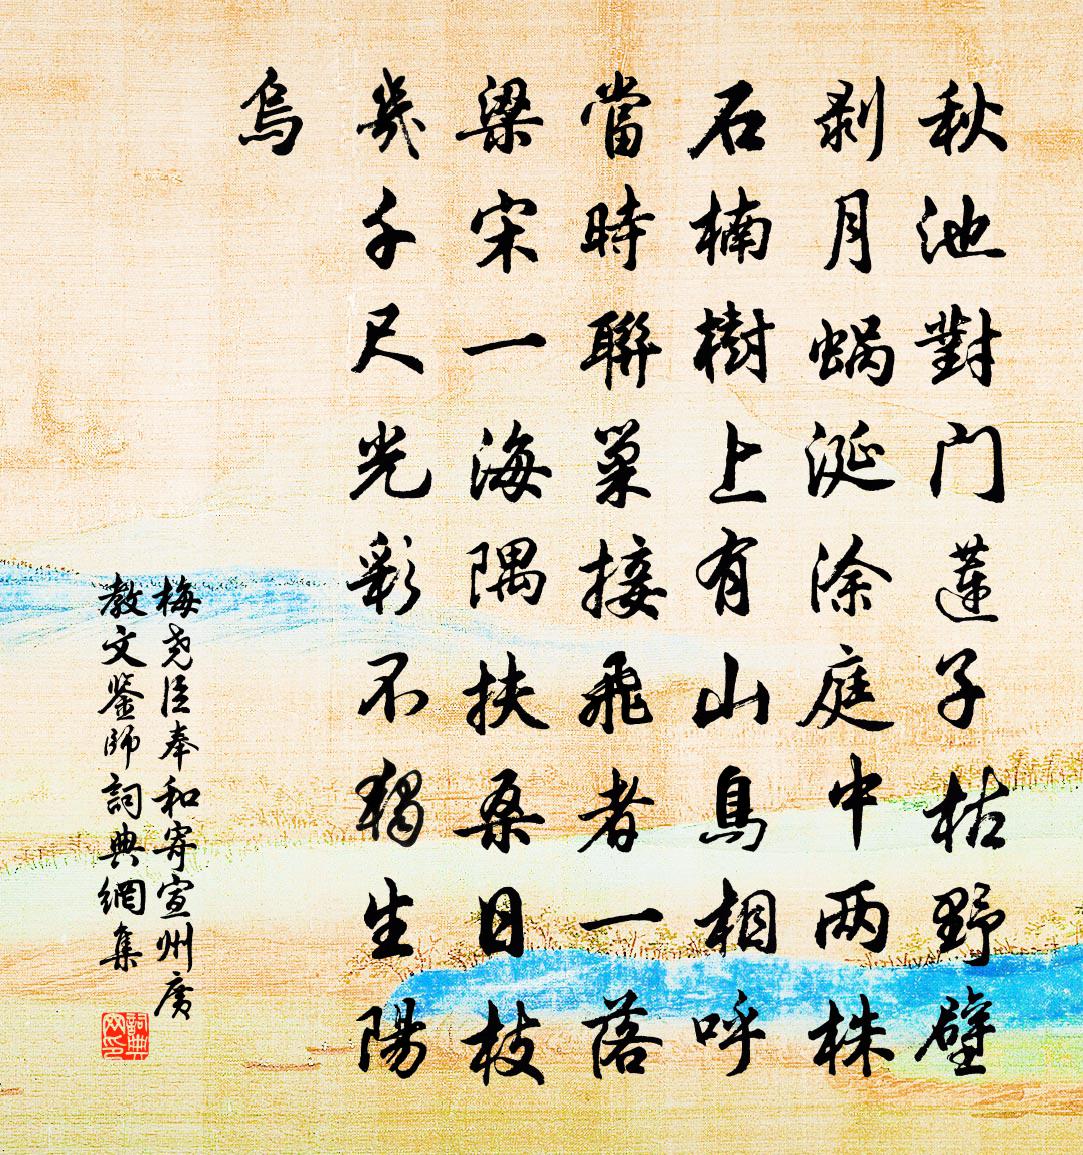 秋池對门蓮子枯野壁
剥月蜗涎涂庭中两株
石楠樹上有山鳥相呼
當時聯巢接飛者一落
梁宋一海隅扶桑日枝
幾千尺光彩不獨生陽
烏
梅尧臣奉和寄宣州廣
教文鉴師詞典網集